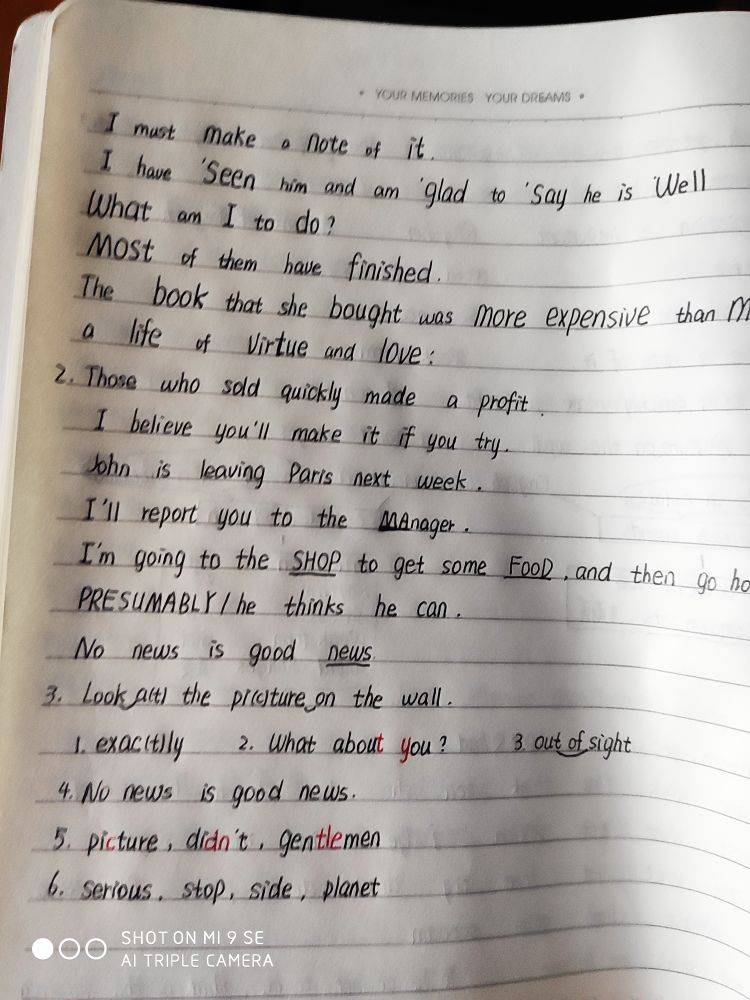 • YOUR MEMORIES YOUR DREAMS •
I must make a note of it.
I have 'Seen him and am 'glad to 'Say he is 'Well
What am I to do?
Most of them have finished.
The book that she bought was more expensive than M
a life of Virtue and love:
2. Those who sold quickly made a profit.
I believe you'll make it if you try.
John is leaving Paris next week.
I'll report you to the MAnager.
I'm going to the SHOP to get some FOOD, and then go ho
PRESUMABLY/he thinks he can.
No news is good news.
3. Look a(t) the pi(c)ture on the wall.
1. exac(t)ly 2. What about you? 3. out of sight
4. No news is good news.
5. picture, didn't, gentlemen
6. serious, stop, side, planet
SHOT ON MI 9 SE
AI TRIPLE CAMERA